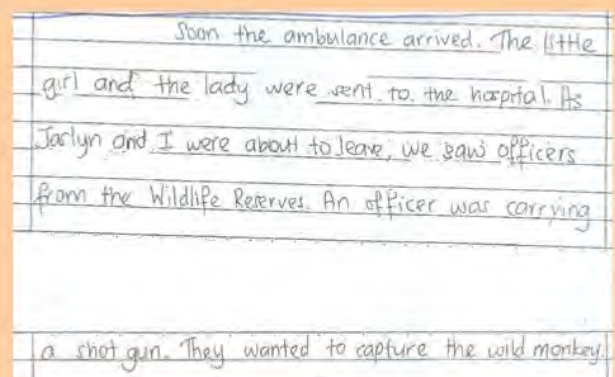 Soon the ambulance arrived. The little
girl and the lady were sent to the hospital. As
Jaslyn and I were about to leave, we saw officers
from the Wildlife Reserves. An officer was carrying
a shot gun. They wanted to capture the wild monkey.